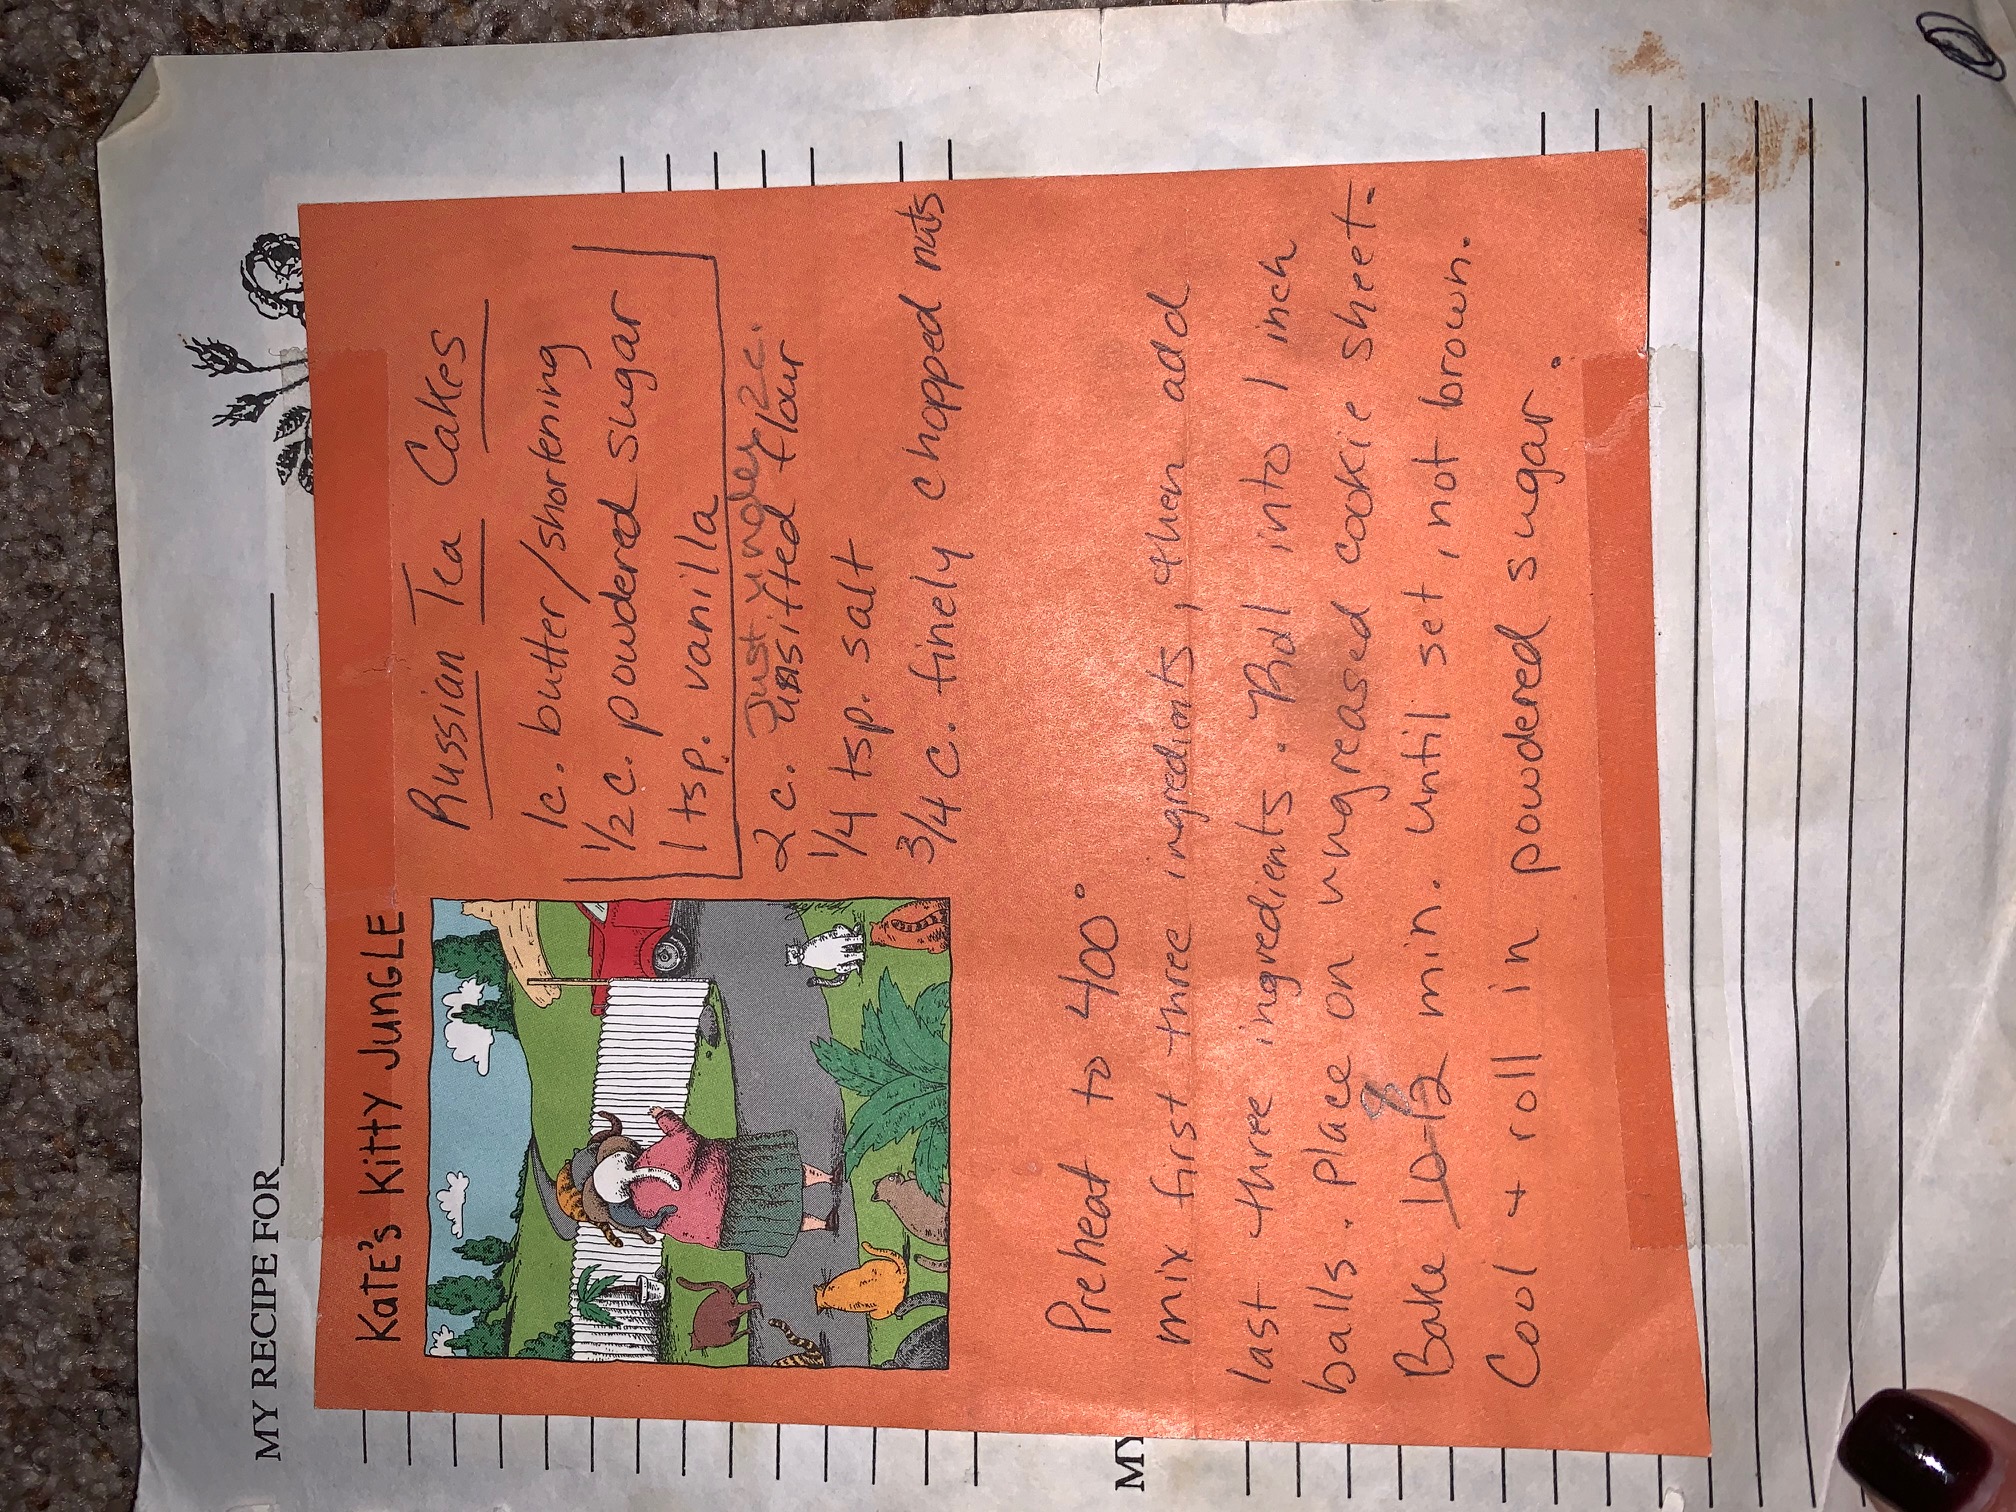 MY RECIPE FOR
KATE'S KITTY JUNGLE
Russian Tea Cakes
1c. butter/shortening
1/2 c. powdered sugar
1 tsp. vanilla
Just under 2c.
2 c. unsifted flour
1/4 tsp. salt
3/4 c. finely chopped nuts
Preheat to 400°
MY
mix first three ingredients, then add
last three ingredients. Roll into 1 inch
balls. Place on ungreased cookie sheet.
8
Bake 10-12 min. until set, not brown.
Cool + roll in powdered sugar.